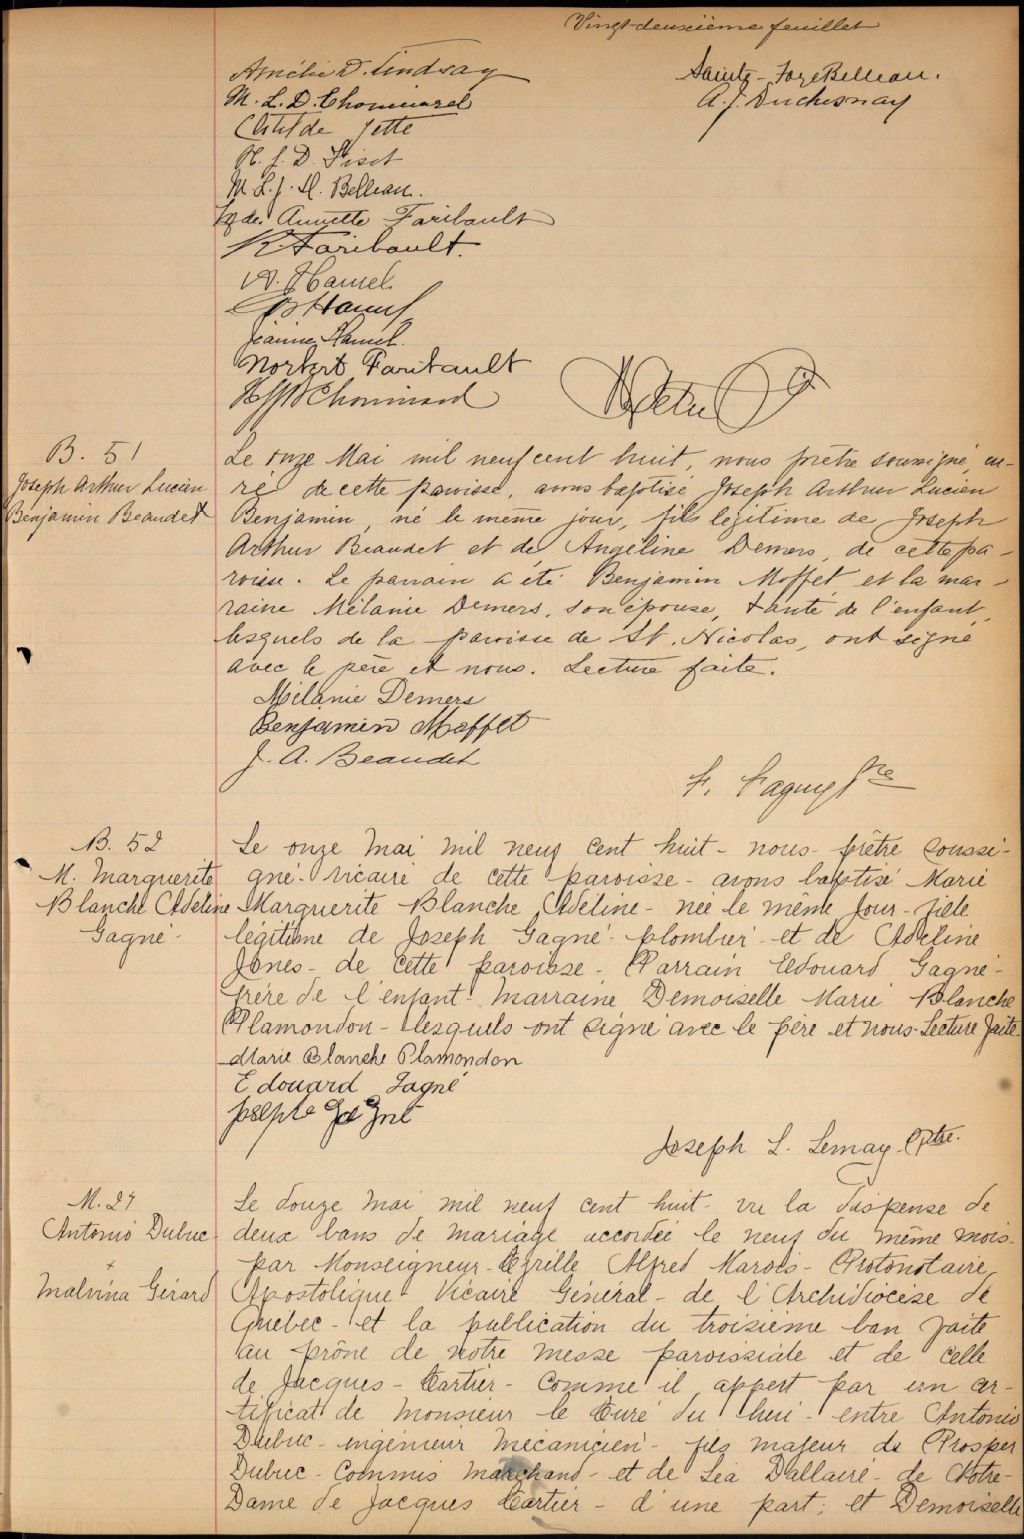 Vingt-deuxième feuillet
Amélie D. Lindsay
M. L. D. Chouinard
Clotilde Jette
H. J. D. Fiset
M. L. J. H. Belleau.
Annette Faribault
R. Faribault.
A. Hamel.
Hamel
Jeanne Hamel.
Norbert Faribault
Chouinard
Sainte-Foye Belleau.
A. J. Duchesnay
B. 51
Joseph Arthur Lucien
Benjamin Beaudet
Le onze Mai mil neuf cent huit, nous prêtre soussigné, cu-
ré de cette paroisse, avons baptisé Joseph Arthur Lucien
Benjamin, né le même jour, fils légitime de Joseph
Arthur Beaudet et de Angéline Demers, de cette pa-
roisse. Le parrain a été Benjamin Moffet et la mar-
raine Mélanie Demers, son épouse, tante de l'enfant,
lesquels de la paroisse de St. Nicolas, ont signé
avec le père et nous. Lecture faite.
Mélanie Demers
Benjamin Moffet
J. A. Beaudet
F. Faguy Ptre
B. 52
M. Marguerite
Blanche Adeline
Gagné
Le onze Mai mil neuf cent huit - nous - prêtre soussi-
gné - vicaire de cette paroisse - avons baptisé Marie
Marguerite Blanche Adeline - née le même jour - fille
légitime de Joseph Gagné - plombier - et de Adeline
Jones - de cette paroisse - Parrain Edouard Gagné -
frère de l'enfant - Marraine Demoiselle Marie Blanche
Plamondon - lesquels ont signé avec le père et nous - Lecture faite
Marie Blanche Plamondon
Edouard Gagné
Joseph Gagné
Joseph L. Lemay Ptre.
M. 27
Antonio Dubuc
+
Malvina Gérard
Le douze Mai mil neuf cent huit - vu la dispense de
deux bans de mariage accordée le neuf du même mois
par Monseigneur - Cyrille Alfred Marois - Protonotaire
Apostolique Vicaire Général - de l'Archidiocèse de
Québec - et la publication du troisième ban faite
au prône de notre messe paroissiale et de celle
de Jacques - Cartier - comme il appert par un cer-
tificat de Monsieur le Curé du lieu - entre Antonio
Dubuc - ingénieur mécanicien - fils majeur de Prosper
Dubuc - Commis marchand - et de Léa Dallaire - de Notre-
Dame de Jacques Cartier - d'une part; et Demoiselle